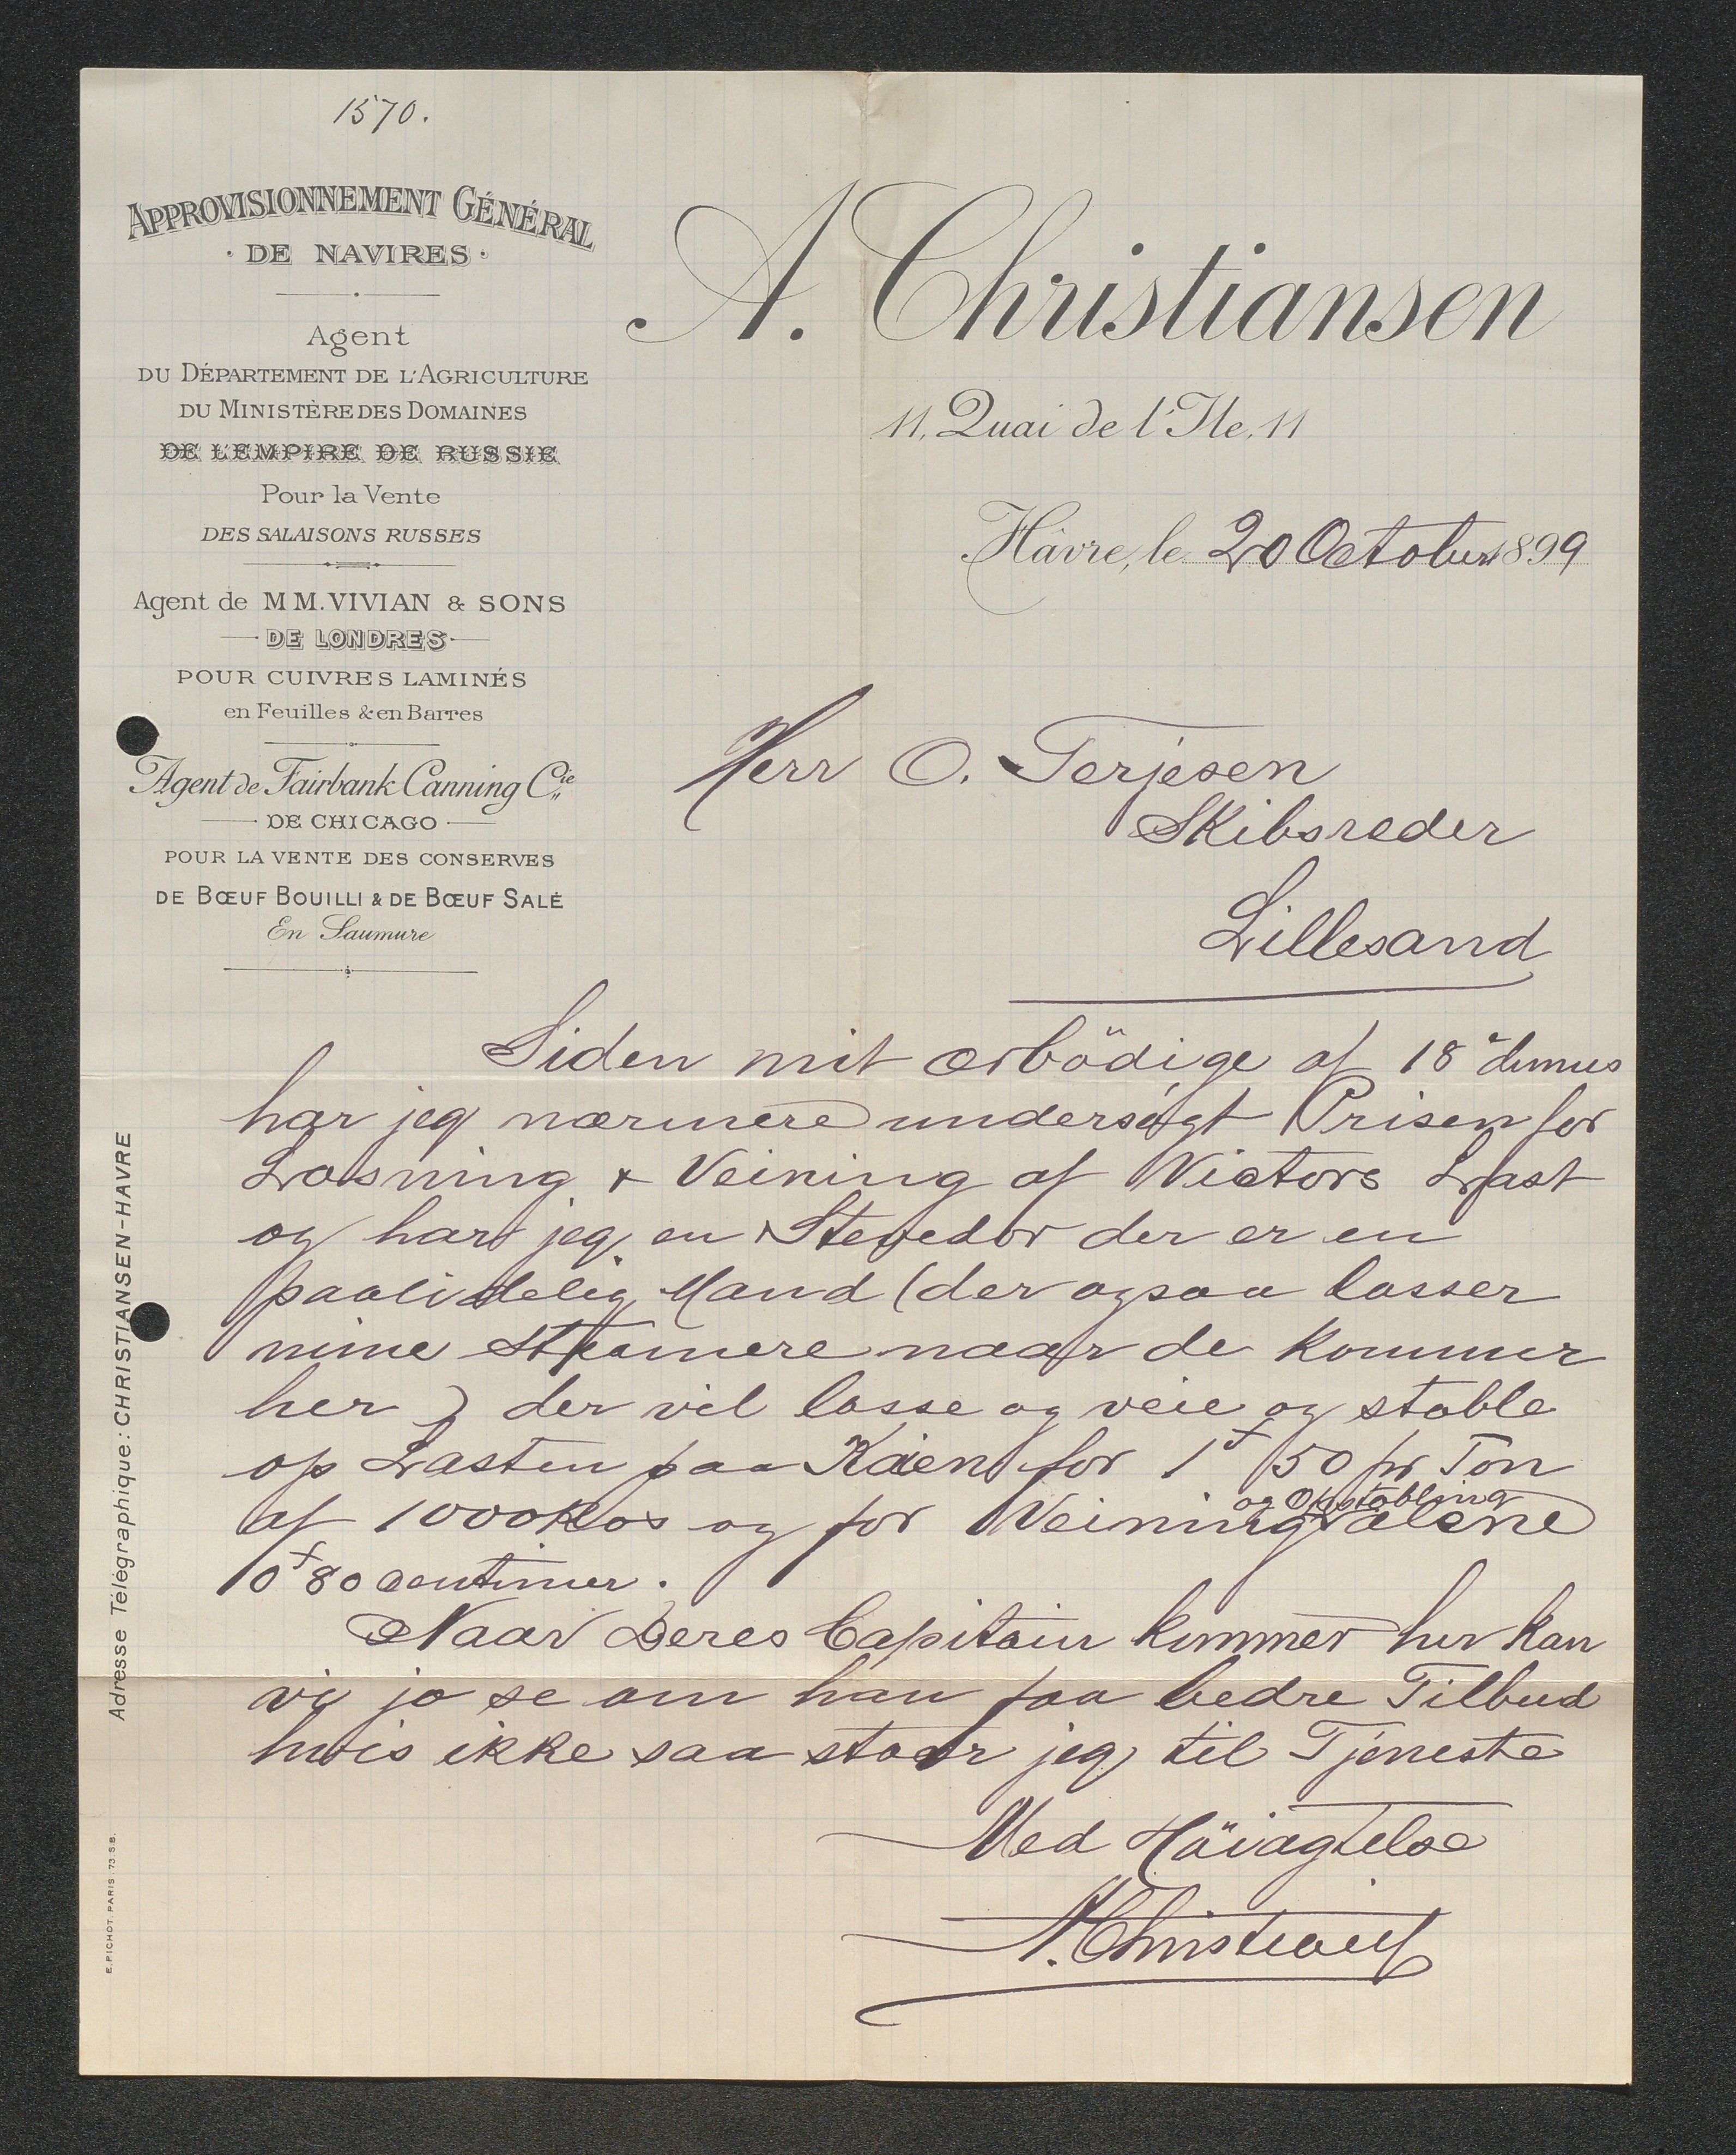 1570.
APPROVISIONNEMENT GÉNÉRAL
· DE NAVIRES ·
Agent
DU DÉPARTEMENT DE L'AGRICULTURE
DU MINISTÈRE DES DOMAINES
DE L'EMPIRE DE RUSSIE
Pour la Vente
DES SALAISONS RUSSES
Agent de MM. VIVIAN & SONS
DE LONDRES
POUR CUIVRES LAMINÉS
en Feuilles & en Barres
Agent de Fairbank Canning Cie
DE CHICAGO
POUR LA VENTE DES CONSERVES
DE BŒUF BOUILLI & DE BŒUF SALÉ
En Saumure
A. Christiansen
11, Quai de l'Ile, 11
Hâvre, le 20 October 1899
Herr O. Terjesen
Skibsreder
Lillesand
Siden mit ærbödige af 18 dennes
har jeg nærmere undersögt Prisen for
Losning & Veining af Victors Last
og har jeg en Stevedor der er en
paalidelig Mand (der ogsaa losser
mine Steamere naar de kommer
her) der vil losse og veie og stable
op Lasten paa Kaien for 1f 50 pr Ton
af 1000 Kos og for Veining og Opstabling alene
0f 80 centimer.
Naar Deres Capitain kommer her kan
vi jo se om han faa bedre Tilbud
hvis ikke saa staar jeg til Tjeneste
Med Höiagtelse
A. Christiansen
Adresse Télégraphique: CHRISTIANSEN-HAVRE
E. PICHOT. PARIS. 73 S B.